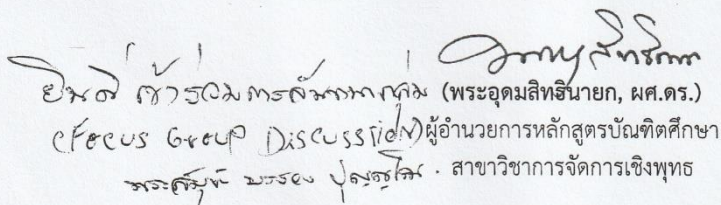 ยินดีเข้าร่วมการสนทนากลุ่ม
(Focus Group Discussion)
(พระอุดมสิทธินายก, ผศ.ดร.)
ผู้อำนวยการหลักสูตรบัณฑิตศึกษา
สาขาวิชาการจัดการเชิงพุทธ